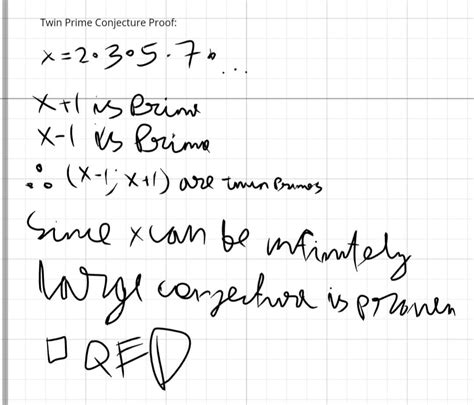 Twin Prime Conjecture Proof:
x = 2·3·5·7·...
x+1 is Prime
x-1 is Prime
∴ (x-1; x+1) are twin Primes
Since x can be infinitely
large conjecture is proven
□ QED